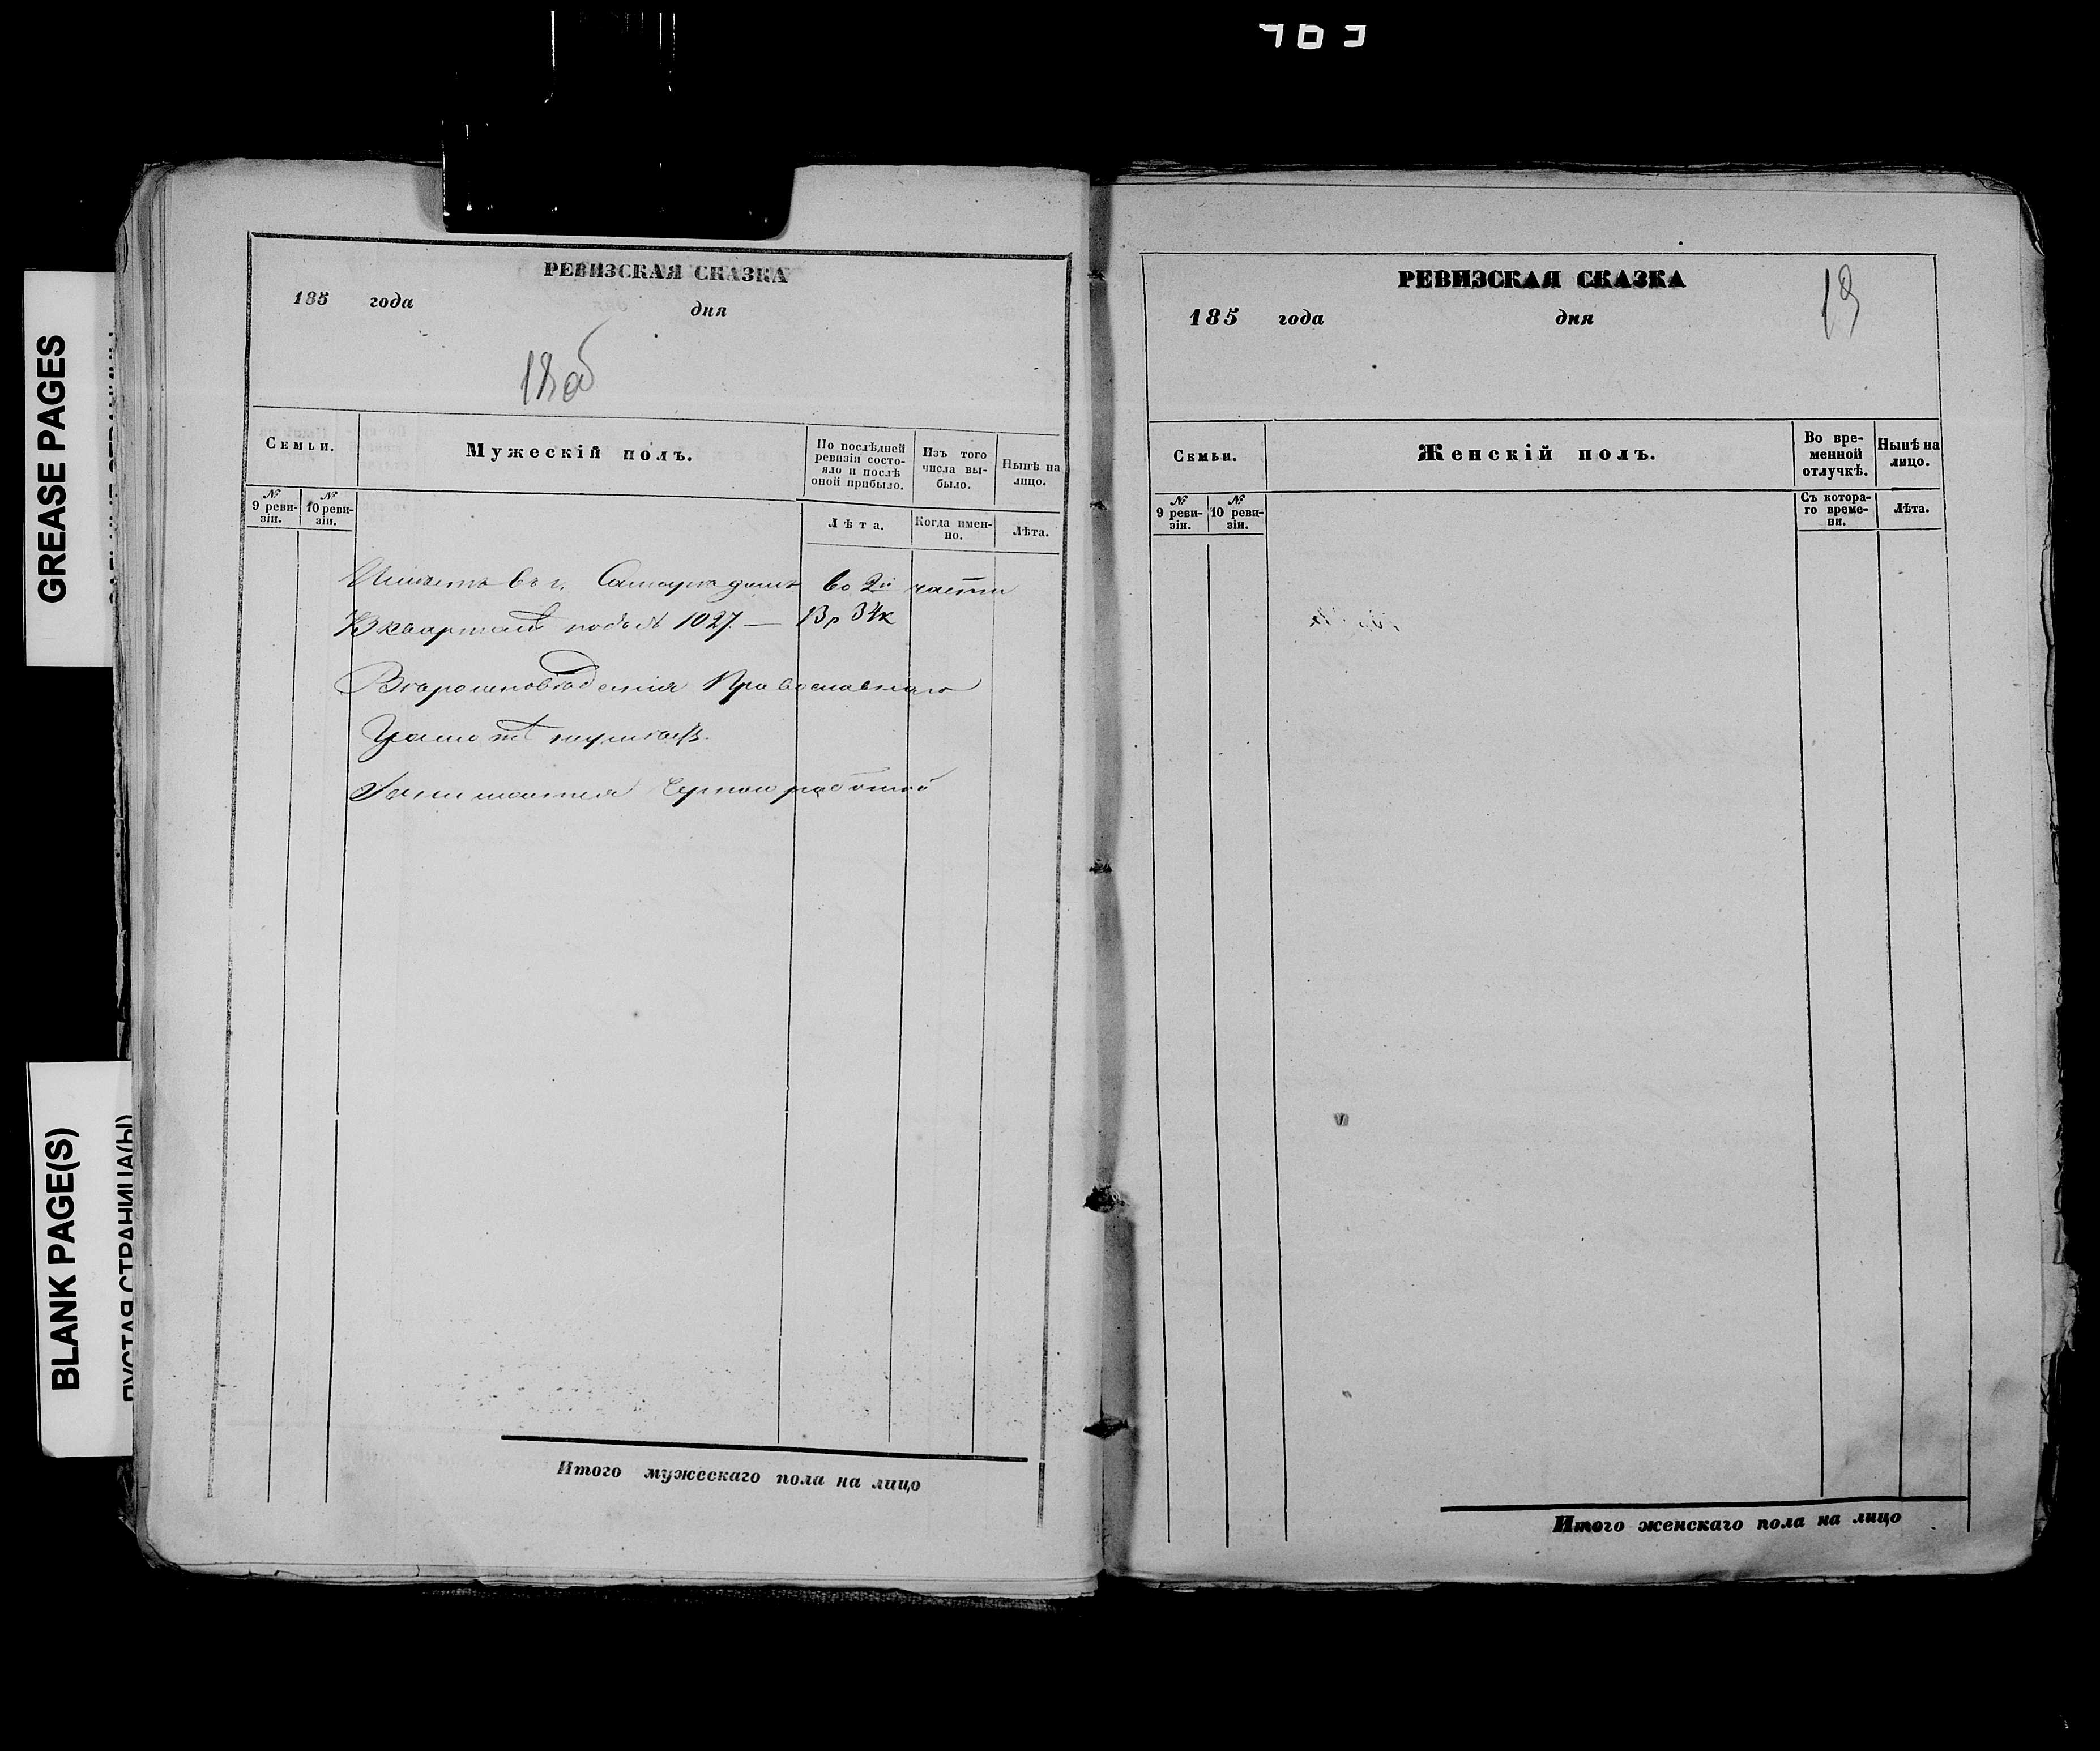 GREASE PAGES
BLANK PAGE(S)
ПУСТАЯ СТРАНИЦА(Ы)
РЕВИЗСКАЯ СКАЗКА
185 года дня
18об
Семьи.
Мужескій полъ.
По послѣдней ревизіи состо-
яло и послѣ
оной прибыло.
Изъ того
числа вы-
было.
Нынѣ на
лицо.
№ 9 реви-
зіи.
№ 10 реви-
зіи.
Лѣта.
Когда имен-
но.
Лѣта.
Имѣетъ въ г. домъ во 2й части
Кварталѣ подъ № 1027. — 13р 34к
Вѣроисповѣданія Православнаго
Грамотѣ
Занимается Черною работой
Итого мужескаго пола на лицо
РЕВИЗСКАЯ СКАЗКА
185 года дня
19
Семьи.
Женскій полъ.
Во вре-
менной
отлучкѣ.
Нынѣ на
лицо.
№ 9 реви-
зіи.
№ 10 реви-
зіи.
Съ котора-
го време-
ни.
Лѣта.
Итого женскаго пола на лицо